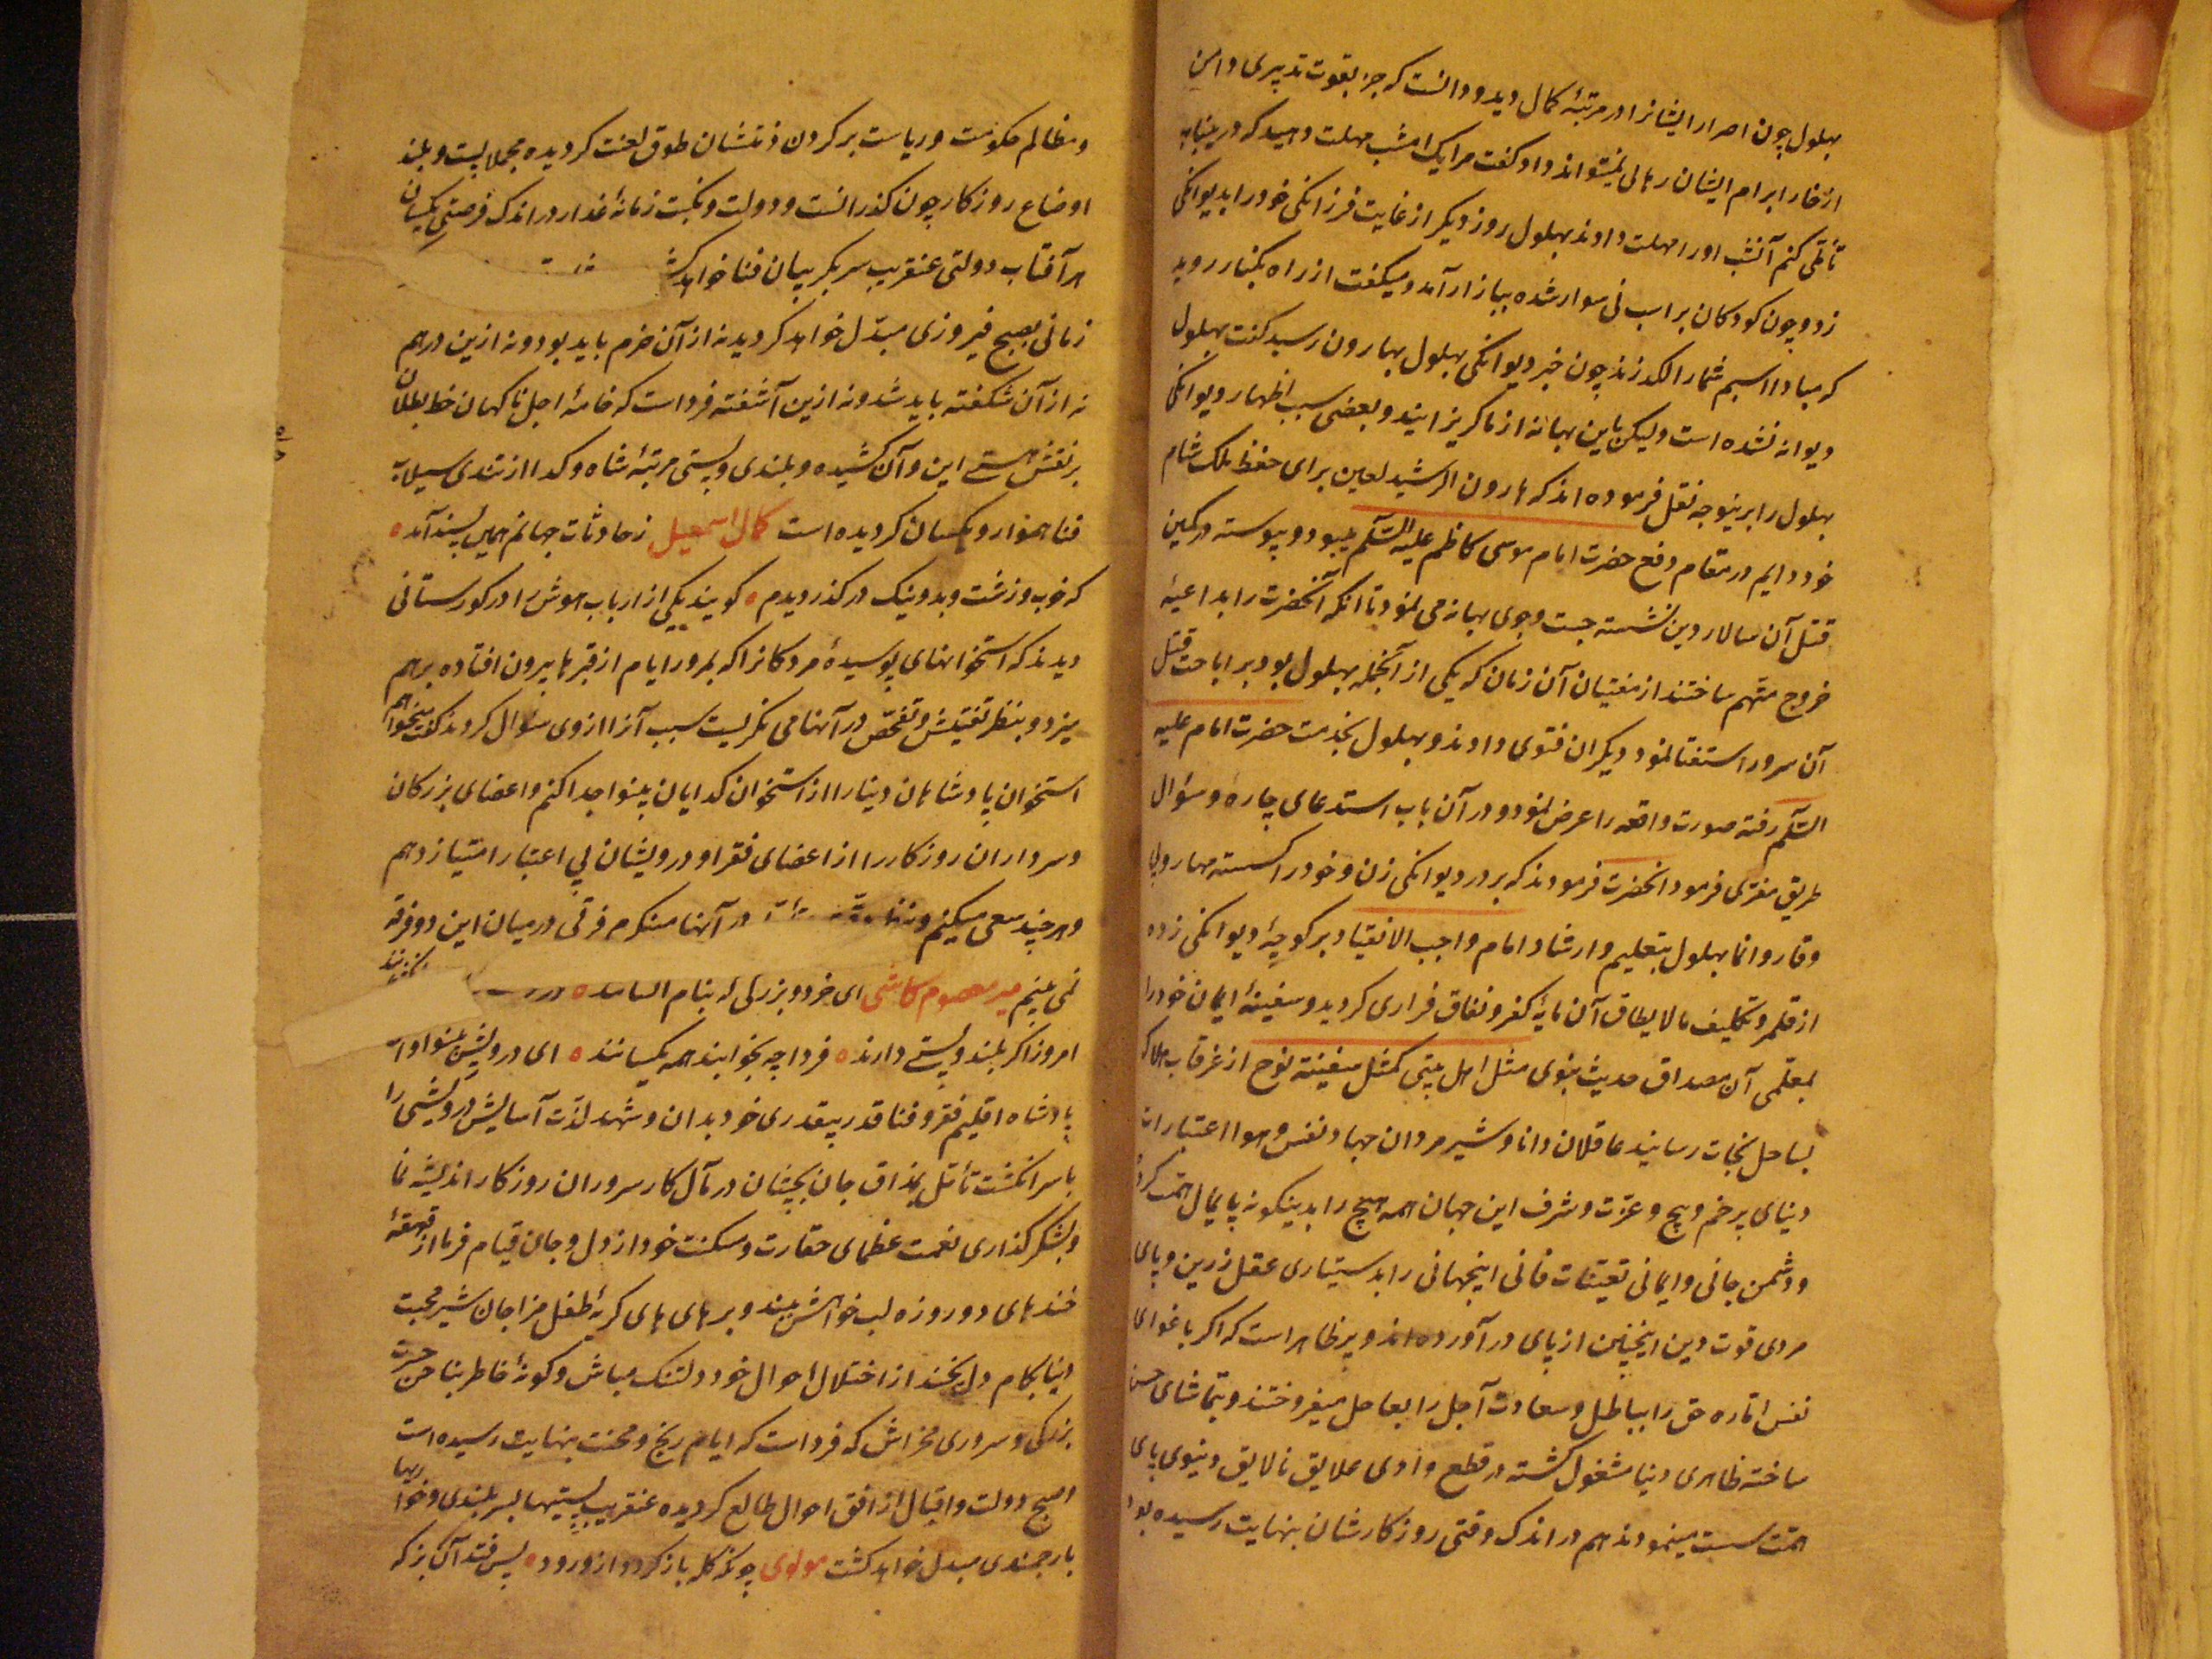 بهلول چون اصرار ایشانرا در مرتبهٔ کمال دید و دانست که جز بقوت تدبیری دامن
از خار ابرام ایشان رهائی نمیتواند داد کفت مرا یک امشب مهلت دهید که درینباب
تأملی کنم آنشب او را مهلت دادند بهلول روز دیکر از غایت فرزانکی خود را بدیوانکی
زد و چون کودکان بر اسب نی سوار شده ببازار آمد و میکفت از راه بکنار روید
که مبادا اسبم شما را لکد زند چون خبر دیوانکی بهلول بهارون رسید کفت بهلول
دیوانه نشده است ولیکن باین بهانه از ما کریزانید و بعضی سبب اظهار دیوانکی
بهلول را برینوجه نقل فرموده اند که هارون الرشید لعین برای حفظ ملک شام
خود دایم در مقام دفع حضرت امام موسی کاظم علیه السّلم میبود و پیوسته در کمین
قتل آن سالار دین نشسته جست وجوی بهانه می نمود تا آنکه آنحضرت را بداعیهٔ
خروج متّهم ساختند از مفتیان آن زمان که یکی از آنجمله بهلول بود بر اباحت قتل
آن سرور استفتا نمود دیکران فتوی دادند و بهلول بخدمت حضرت امام علیه
السّلم رفته صورت واقعه را عرض نمود و در آن باب استدعای چاره و سؤال
طریق مفری فرمود انحضرت فرمودند که بر در دیوانکی زن و خود را کسسته مهار و بی
وقار وانما بهلول بتعلیم و ارشاد امام واجب الانقیاد بر کوچهٔ دیوانکی زده
از قلمرو تکلیف مالایطاق آن مایهٔ کفر و نفاق فراری کردید و سفینهٔ ایمان خود را
بمعلمی آن مصداق حدیث نبوی مثل اهل بیتی کمثل سفینة نوح از غرقاب هلاک
بساحل نجات رسانید عاقلان دانا و شیر مردان جهاد نفس و هوا اعتبارات
دنیای پر خم و پیچ و عزّت و شرف این جهان همه هیچ را بدینکونه پایمال همّت کرده
و دشمن جانی و ایمانی تعینات فانی اینجهانی را بدستیاری عقل زرین و پای
مردی قوت دین اینچنین از پای در آورده اند و پر ظاهر است که اکر باغوای
نفس اماره حق را بباطل و سعادت آجل را بعاجل میفروختند و بتماشای حسن
ساخته ظاهری دنیا مشغول کشته در قطع وادی علایق نالایق دنیوی پای
همّت سست مینمودند هم در اندک وقتی روز کارشان بنهایت رسیده بود
و مظالم حکومت و ریاست بر کردن ذمتشان طوق لعنت کردیده مجملا پست و بلند
اوضاع روز کار چون کذرانست و دولت و نکبت زمانهٔ غدار در اندک فرصتی یکسان
هر آفتاب دولتی عنقریب سر بکریبان فنا خواهد
زمانی بصبح فیروزی مبدّل خواهد کردید نه از آن خرم باید بود و نه ازین درهم
نه از آن شکفته باید شد و نه ازین آشفته فرداست که خامهٔ اجل ناکهان خط بطلان
بر نقش هستی این و آن کشیده و بلندی و پستی مرتبهٔ شاه و کدا از تندی سیلاب
فنا هموار و یکسان کردیده است کمال اسمعیل ز حادثات جهانم همین پسند آمد
که خوب و زشت و بد و نیک در کذر دیدم کویند یکی از ارباب هوش را در کورستانی
دیدند که استخوانهای پوسیدهٔ مردکانرا که بمرور ایام از قبرها بیرون افتاده برهم
میزد و بنظر تفتیش و تفحّص در آنها می نکریست سبب آنرا از وی سؤال کردند کفت میخواهم
استخوان پادشاهان دینا را از استخوان کدایان بینوا جدا کنم و اعضای بزرکان
و سرداران روزکار را از اعضای فقرا و درویشان بی اعتبار امتیاز دهم
و هر چند سعی میکنم و در آنها مینکرم فرقی در میان این دو فرقه
نمی بینم میر معصوم کاشی ای خرد و بزرکی که بنام
امروز اکر بلند و پستی دارند فردا چه بخوابند همه یکسانند ای درویش بینوا و ای
پادشاه اقلیم فقر و فنا قدر بیقدری خود بدان و شهد لذّت آسایش درویشی را
با سر انکشت تأمّل بمذاق جان بچشان در مآل کار سروران روزکار اندیشه نما
و بشکر کذاری نعمت عظمای حقارت و مسکنت خود از دل و جان قیام فرما از قهقههٔ
خندهای دو روزه لب خواهش ببند و بر های های کریهٔ طفل مزاجان شیر محبت
دنیا بکام دل بخند از اختلال احوال خود دلتنک مباش و کونهٔ خاطر بناخن حسرت
بزرکی و سروری مخراش که فرداست که ایام رنج و محنت بنهایت رسیده است
و صبح دولت و اقبال از افق احوال طالع کردیده عنقریب پستیها بسر بلندی و خواریها
بارجمندی مبدل خواهد کشت مولوی چونکه کله باز کردد از ورود پس فتد آن بز که